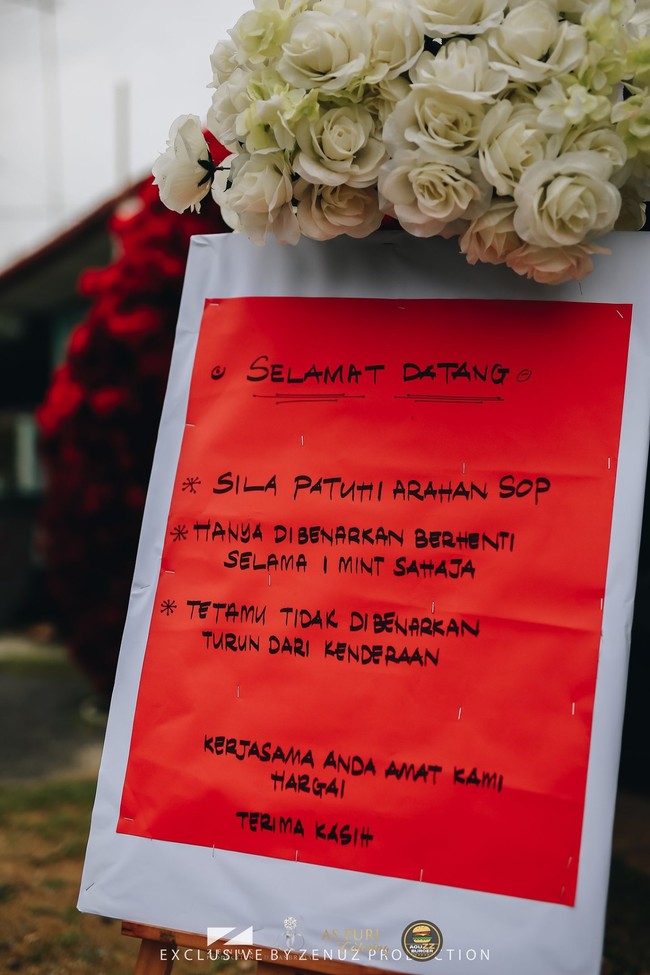 SELAMAT DATANG
* SILA PATUHI ARAHAN SOP
* HANYA DIBENARKAN BERHENTI
SELAMA 1 MINT SAHAJA
* TETAMU TIDAK DIBENARKAN
TURUN DARI KENDERAAN
KERJASAMA ANDA AMAT KAMI
HARGAI
TERIMA KASIH
EXCLUSIVE BY ZENUZ PRODUCTION